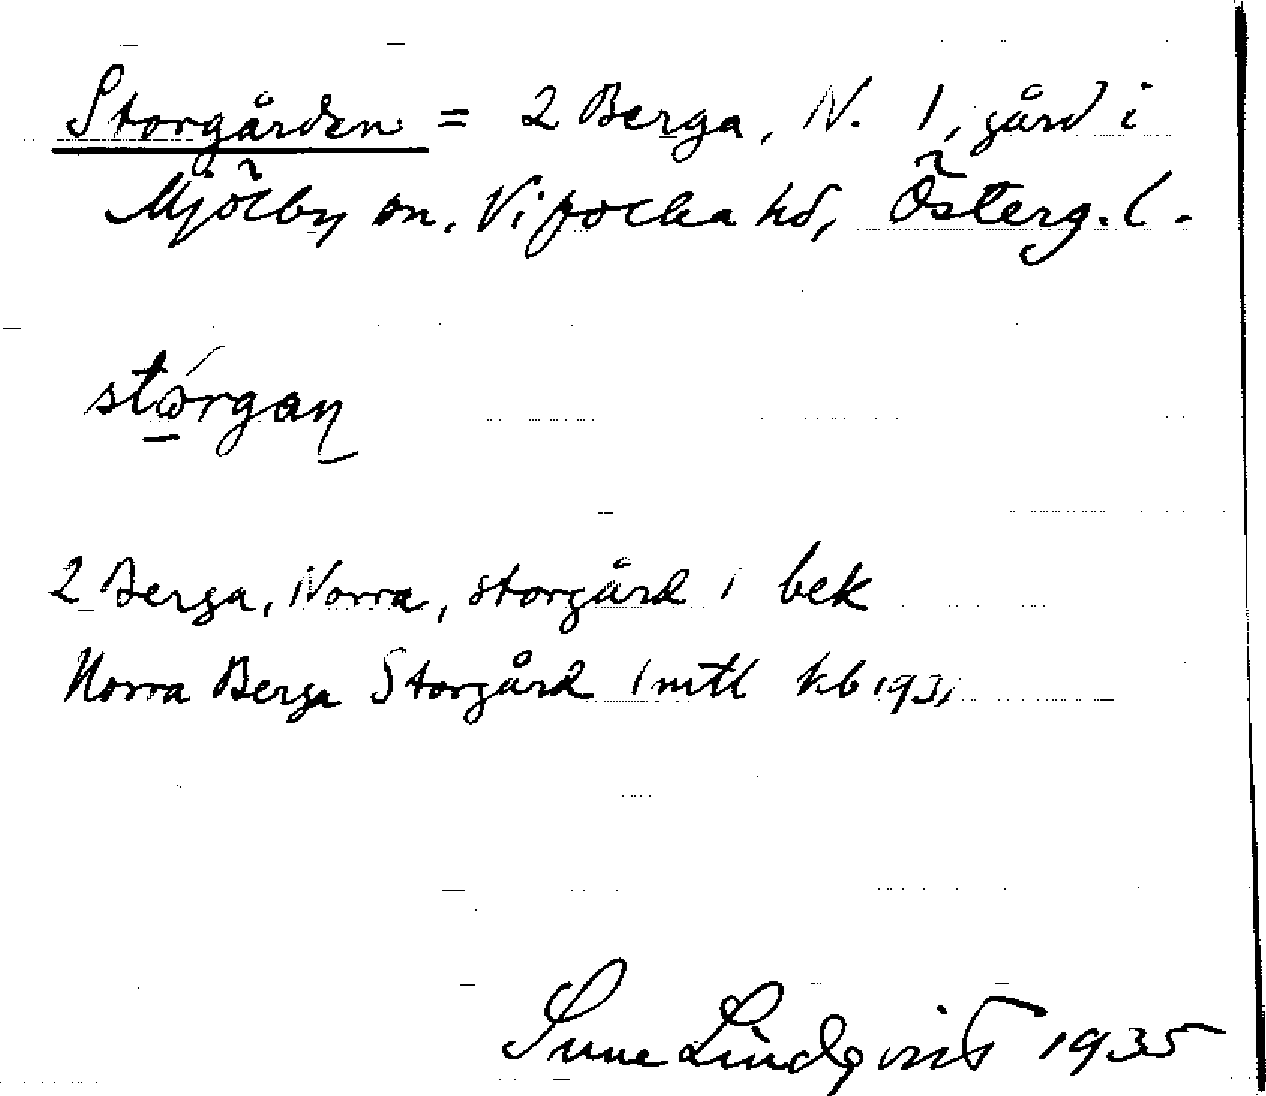 Storgården = 2 Berga, N. 1, gård i
Mjölby sn, Vifolka hd, Österg. l.
stórgaṇ
2 Berga, Norra, storgård 1 bek
Norra Berga Storgård 1 mtl kb 1931
Sune Lindqvist 1935